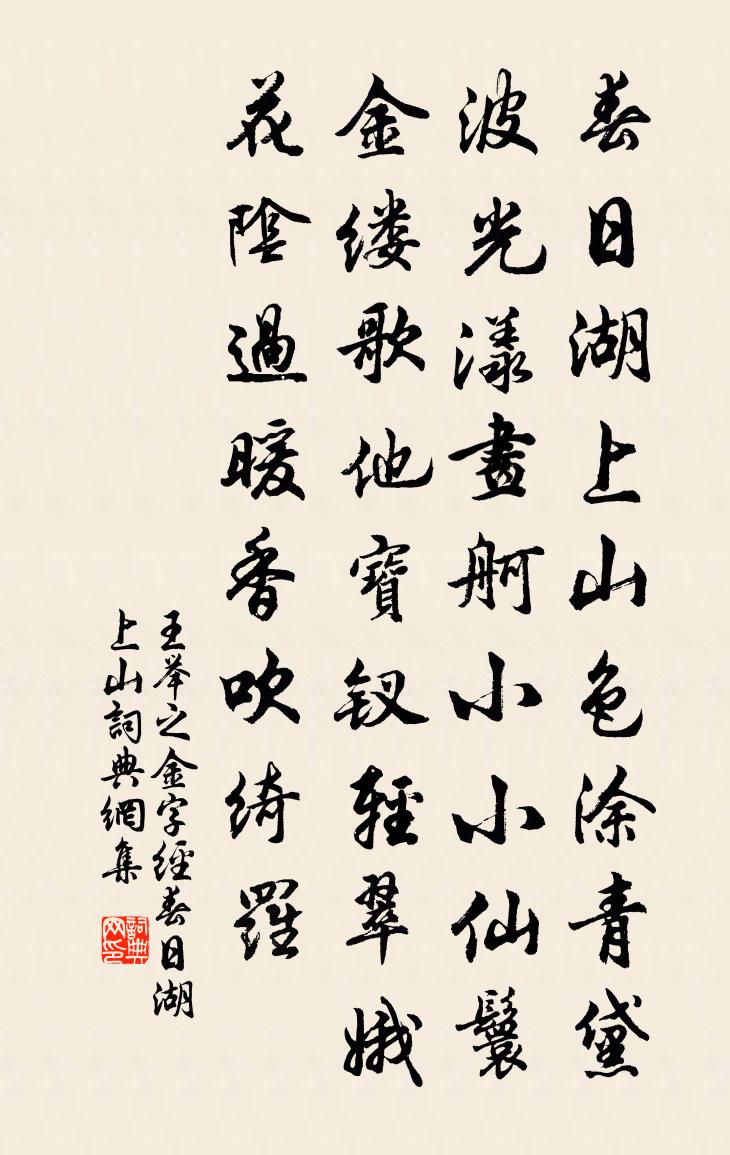 春日湖上山色涂青黛
波光漾畫舸小小仙鬟
金缕歌他寶钗輕翠娥
花陰過暖香吹绮羅
王举之金字經春日湖
上山詞典網集
詞典网印